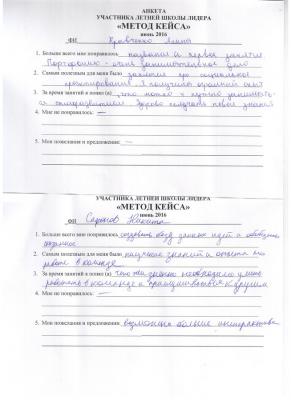 АНКЕТА
УЧАСТНИКА ЛЕТНЕЙ ШКОЛЫ ЛИДЕРА
«МЕТОД КЕЙСА»
июнь 2016
ФИ Кравченко
1. Больше всего мне понравилось названия и первое занятие
Портфолио - очень занимательное дело
2. Самым полезным для меня было занятие про социальное
проектирование. Я получила огромный опыт
3. За время занятий я понял (а), что можно и нужно заниматься
саморазвитием. Здорово получать новые знания
4. Мне не понравилось: —
5. Мои пожелания и предложения: —
УЧАСТНИКА ЛЕТНЕЙ ШКОЛЫ ЛИДЕРА
«МЕТОД КЕЙСА»
июнь 2016
ФИ Никита
1. Больше всего мне понравилось создавать базу данных идей и
2. Самым полезным для меня было получение знаний и опыта
работе в команде
3. За время занятий я понял (а) что необходимо уметь
работать в команде и прислушиваться к другим
4. Мне не понравилось: —
5. Мои пожелания и предложения: возможно больше интерактива